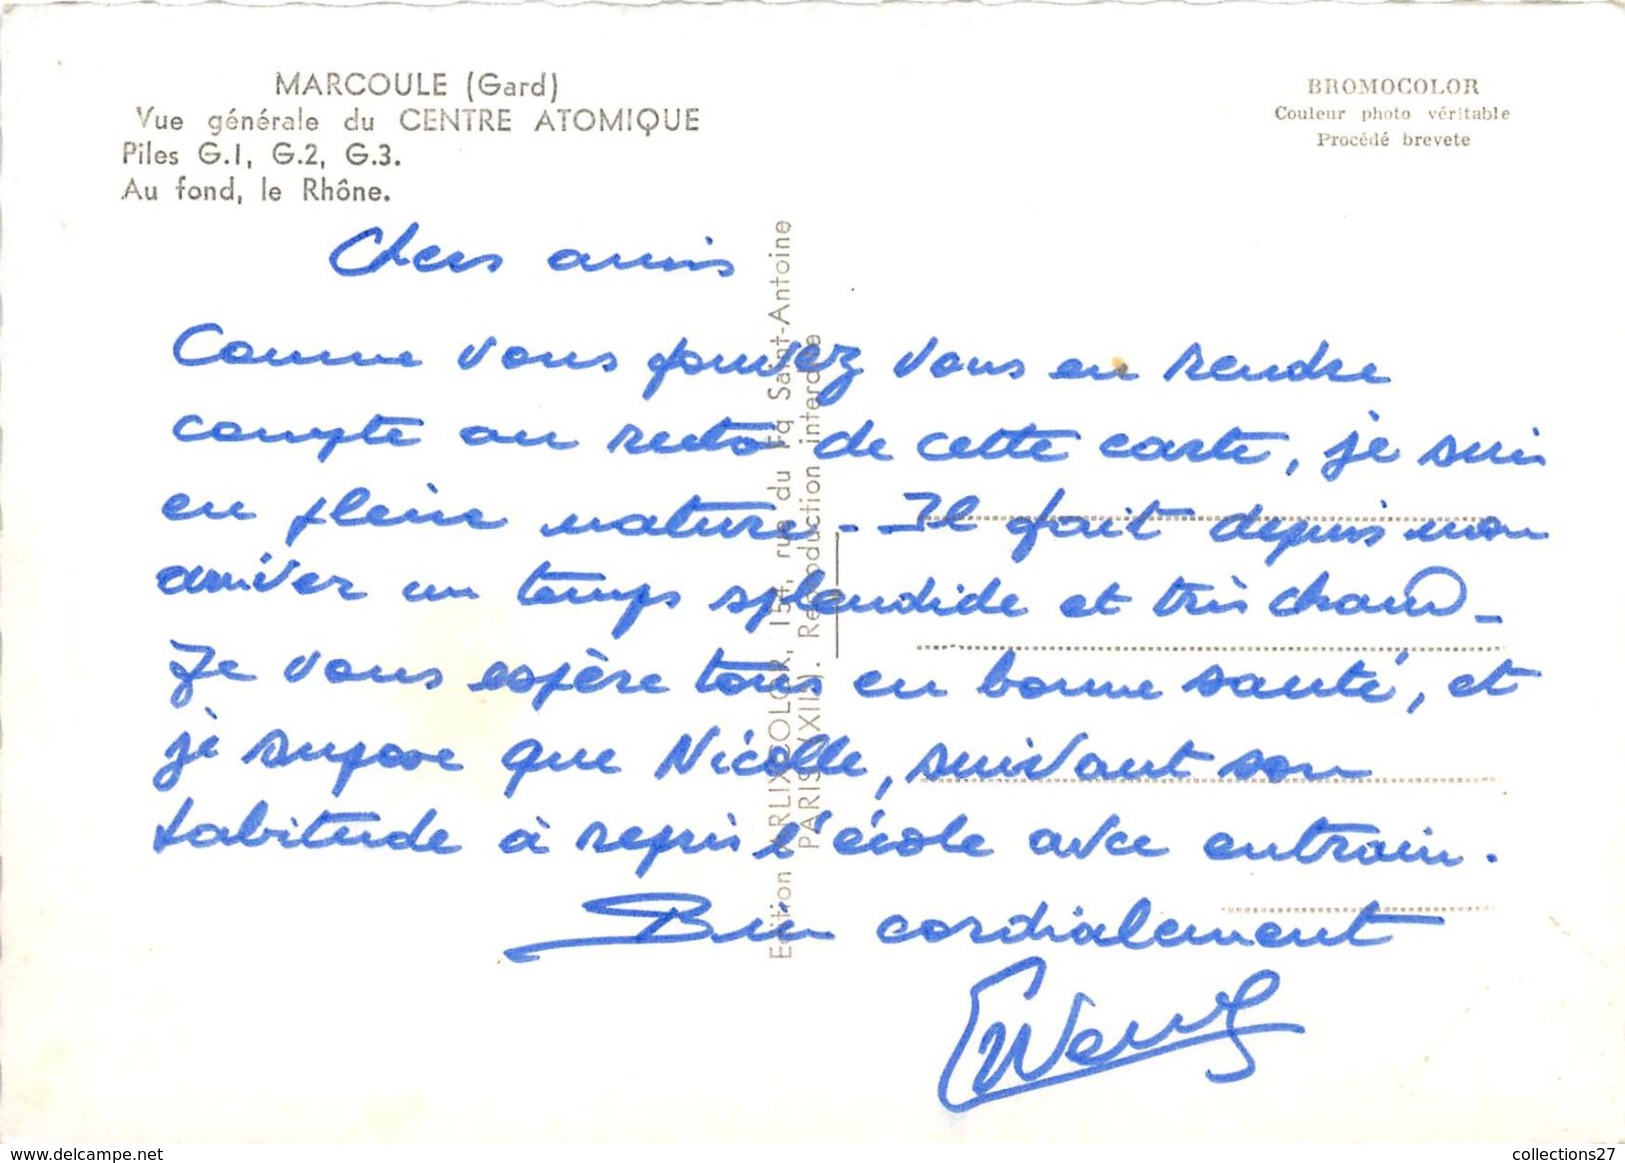 MARCOULE (Gard)
Vue générale du CENTRE ATOMIQUE
Piles G.1, G.2, G.3.
Au fond, le Rhône.
BROMOCOLOR
Couleur photo véritable
Procédé brevete
Chers amis
Comme vous pouvez vous en rendre
compte au recto de cette carte, je suis
en pleine nature - Il fait depuis mon
arriver un temps splendide et très chaud -
Je vous espère tous en bonne santé, et
je suppose que Nicolle, suivant son
habitude à repris l'école avec entrain.
Bien cordialement
Edition ARLIXCOLOR, 154, rue du Fg Saint-Antoine
PARIS (XII). Reproduction interdite
www.delcampe.net
collections27